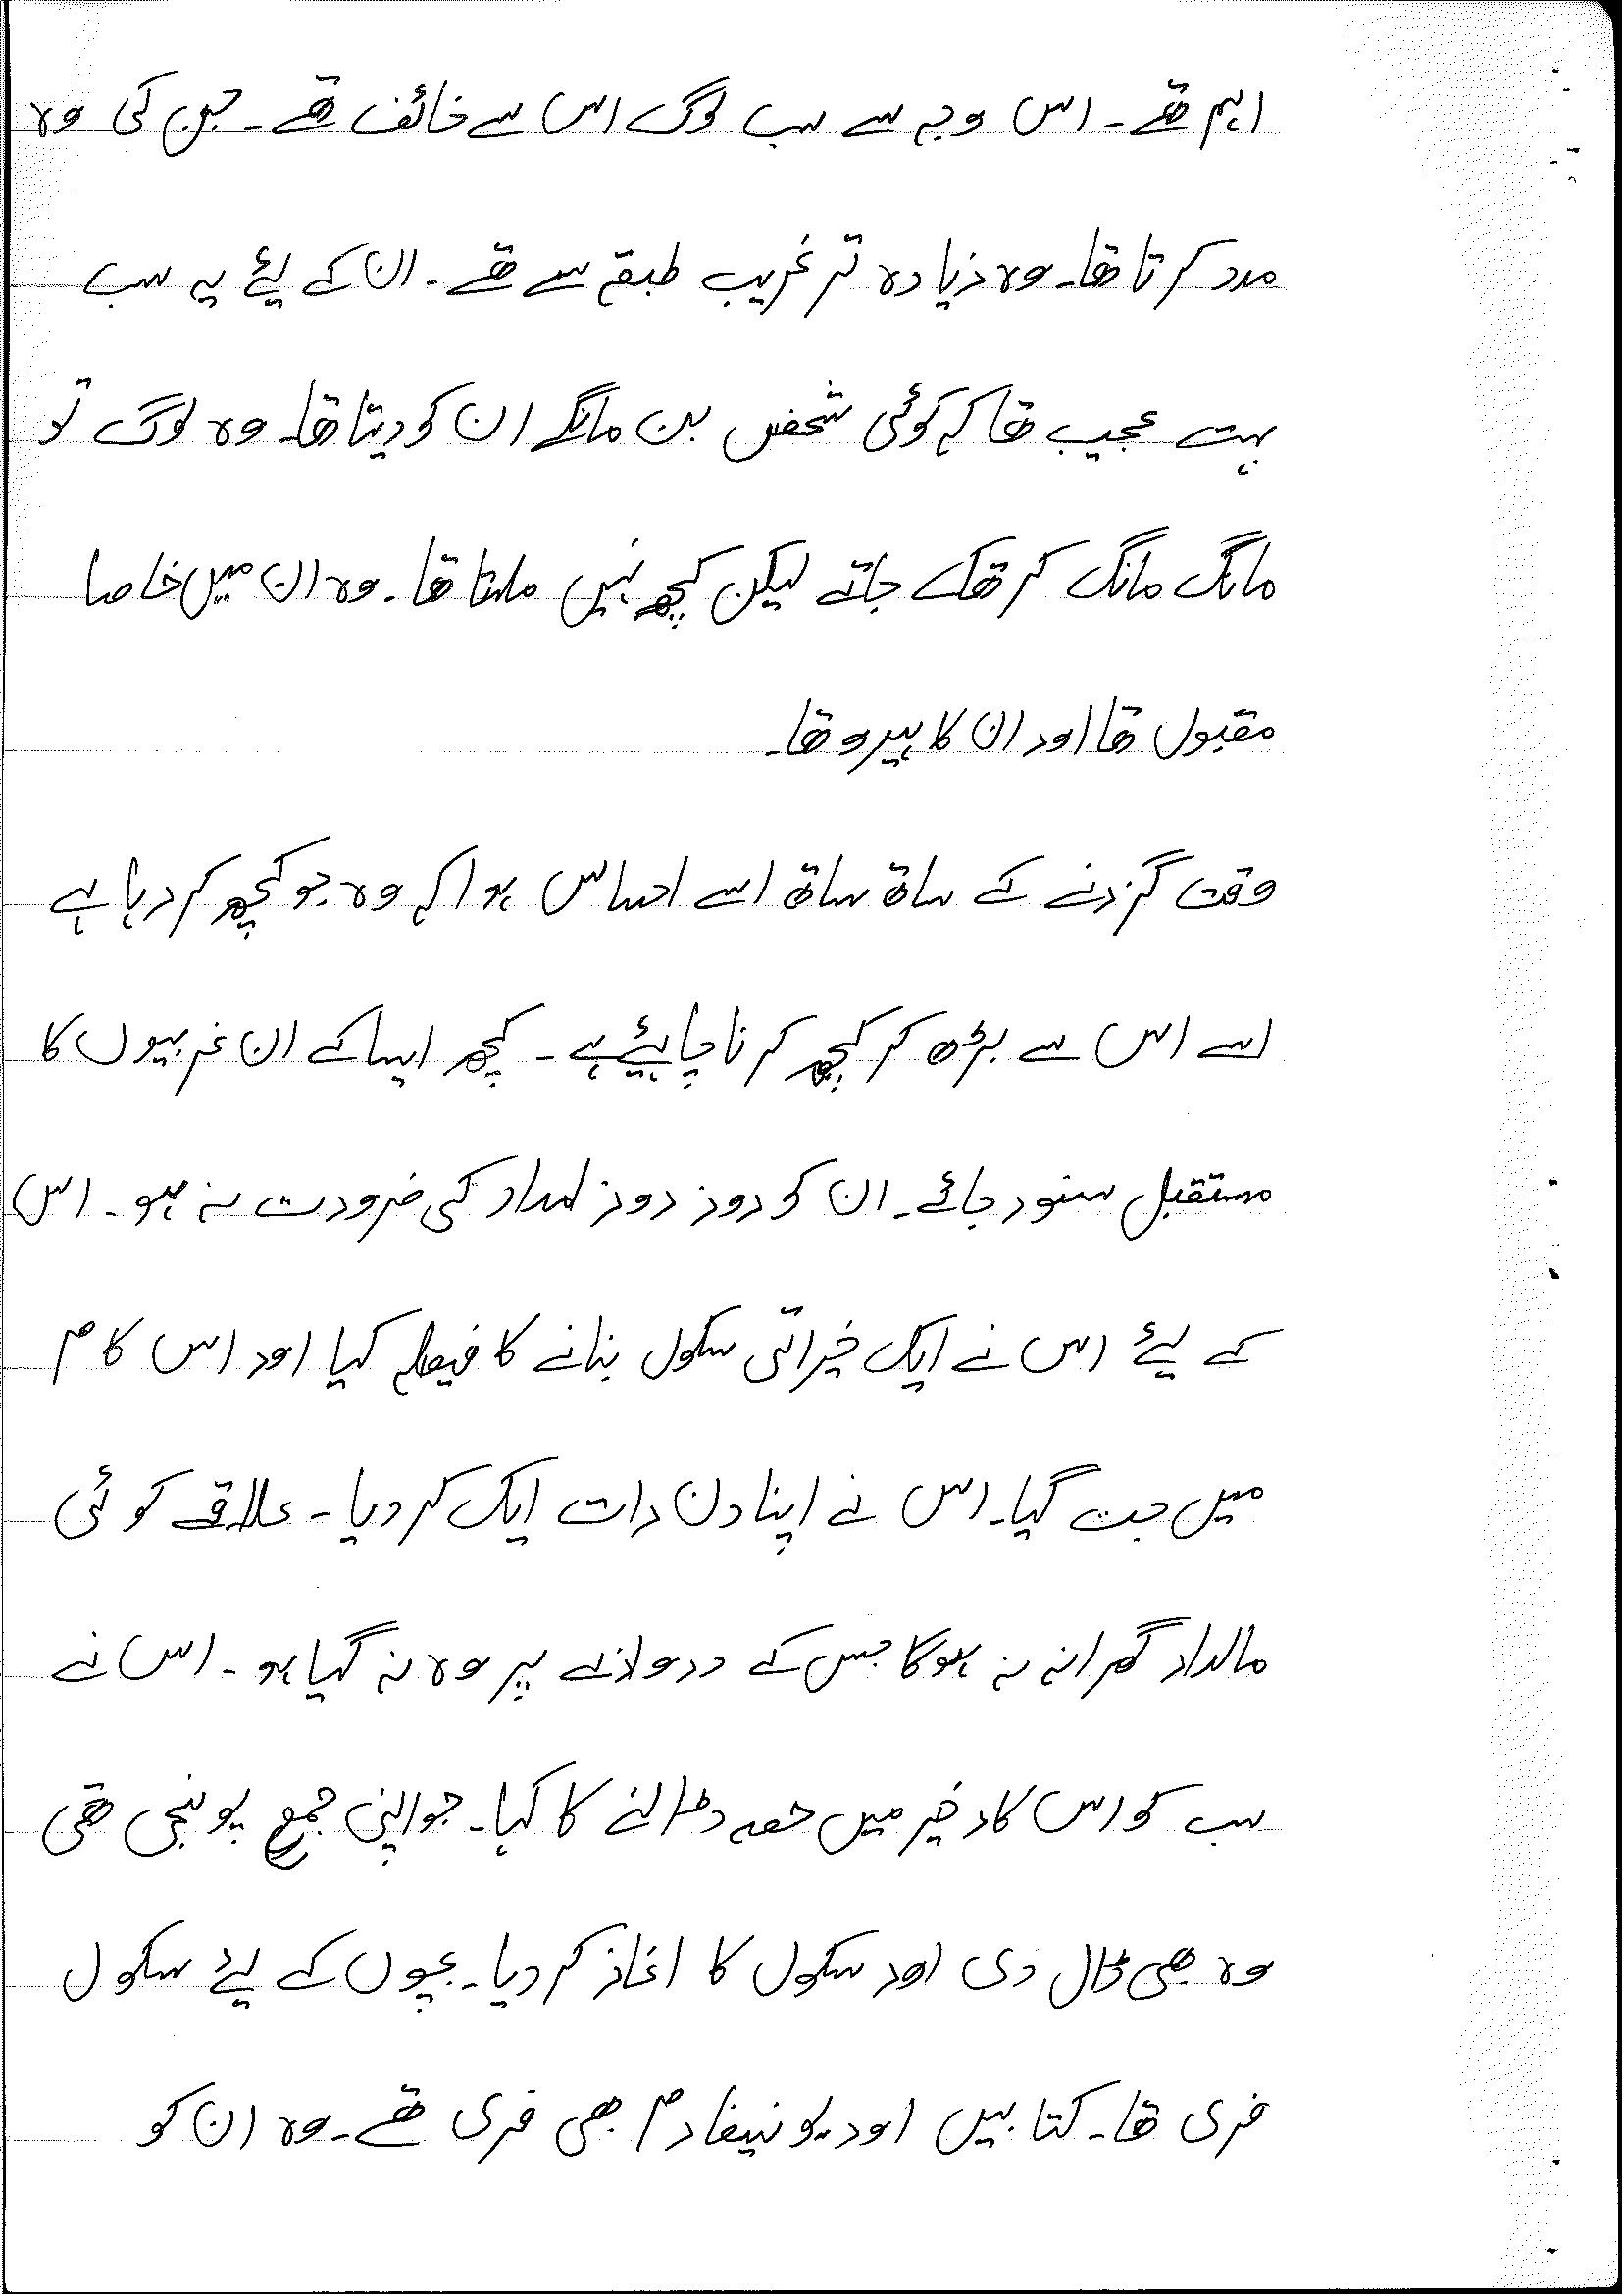 اہم تھے۔ اس وجہ سے سب لوگ اس سے خائف تھے۔ جن کی وہ
مدد کرتا تھا۔ وہ زیادہ تر غریب طبقے سے تھے۔ ان کے لیۓ یہ سب
بہت عجیب تھا کہ کوئی شخص بن مانگے ان کو دیتا تھا۔ وہ لوگ تو
مانگ مانگ کر تھک جاتے لیکن کچھ نہیں ملتا تھا۔ وہ ان میں خاصا
مقبول تھا اور ان کا ہیرو تھا۔
وقت گزرنے کے ساتھ ساتھ اسے احساس ہوا کہ وہ جو کچھ کر رہا ہے
اسے اس سے بڑھ کر کچھ کرنا چاہیۓ ہے۔ کچھ ایسا کے ان غریبوں کا
مستقبل سنور جائے۔ ان کو روز روز امداد کی ضرورت نہ ہو۔ اس
کے لیۓ اس نے ایک خیراتی سکول بنانے کا فیصلہ کیا اور اس کام
میں جت گیا۔ اس نے اپنا دن رات ایک کر دیا۔ علاقے کوئی
مالدار گھرانہ نہ ہوگا جس کے دروازے پر وہ نہ گیا ہو۔ اس نے
سب کو اس کار خیر میں حصہ ڈالنے کا کہا۔ جو اپنی جمع پونجی تھی
وہ بھی ڈال دی اور سکول کا اغاز کر دیا۔ بچوں کے لیۓ سکول
فری تھا۔ کتابیں اور یونیفارم بھی فری تھے۔ وہ ان کو